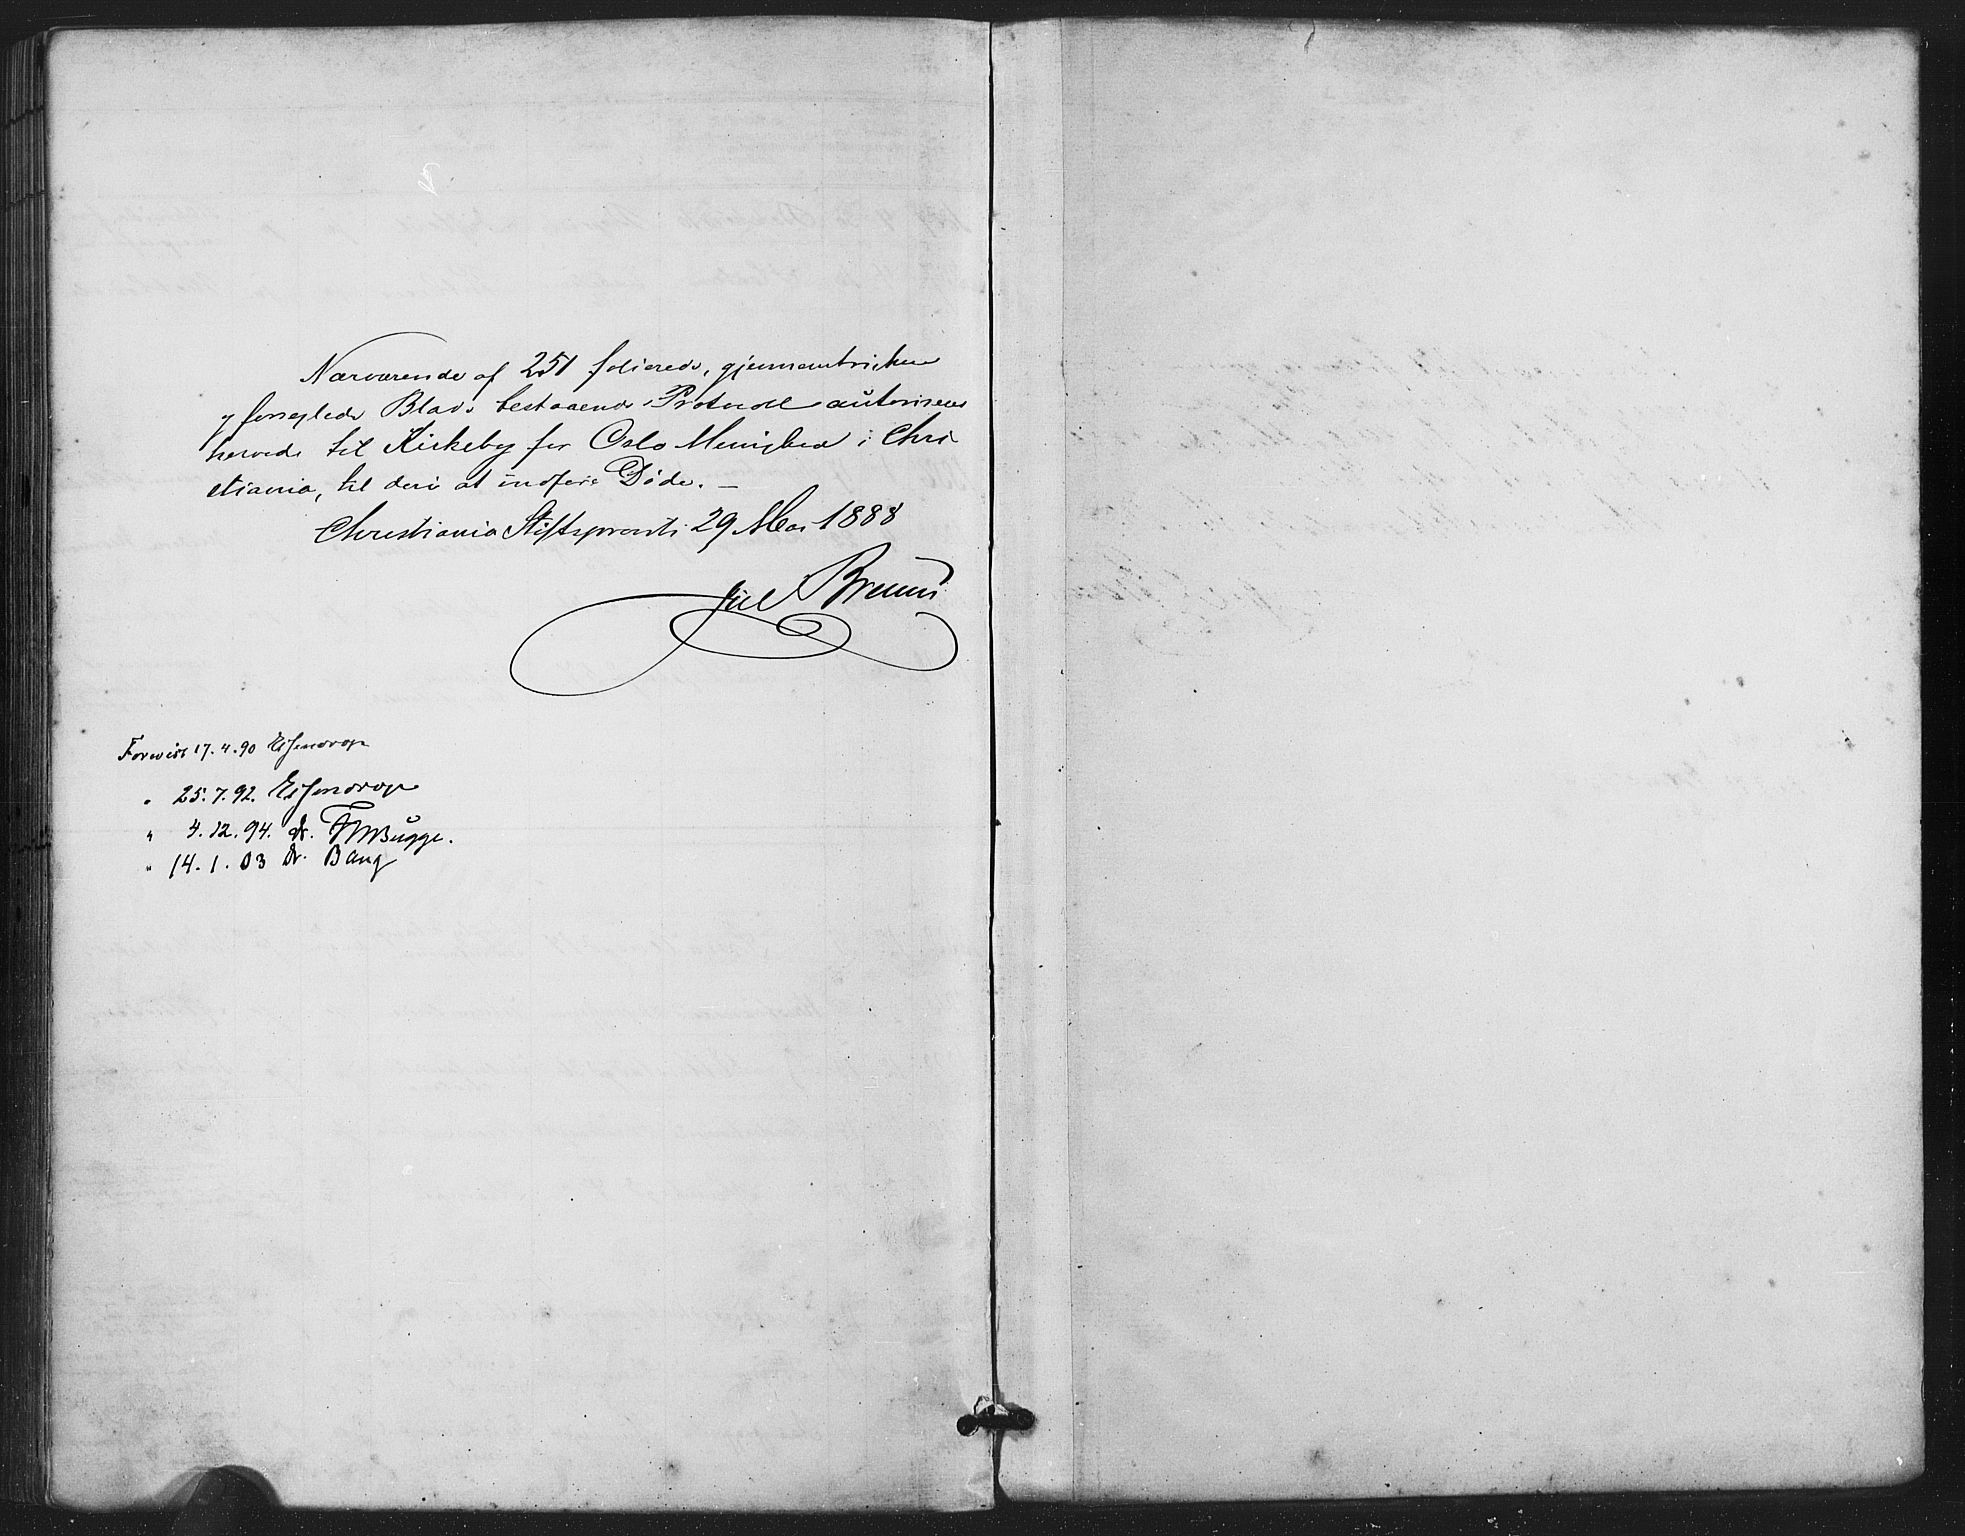 Nærværende af 251 folierede, gjennemtrukne
og forseglede Blade bestaaende Protocol autoriseres
herved til Kirkebog for Oslo Menighed i Chri
stiania, til deri at indføre Døde. —
Christiania Stiftsprovsti 29 Mai 1888
Juel Bruun
Forevist 17.4.90 Essendrop
" 25.7.92. Essendrop
" 4.12.94. dr. FWBugge.
" 14.1.03 Dr. Bang